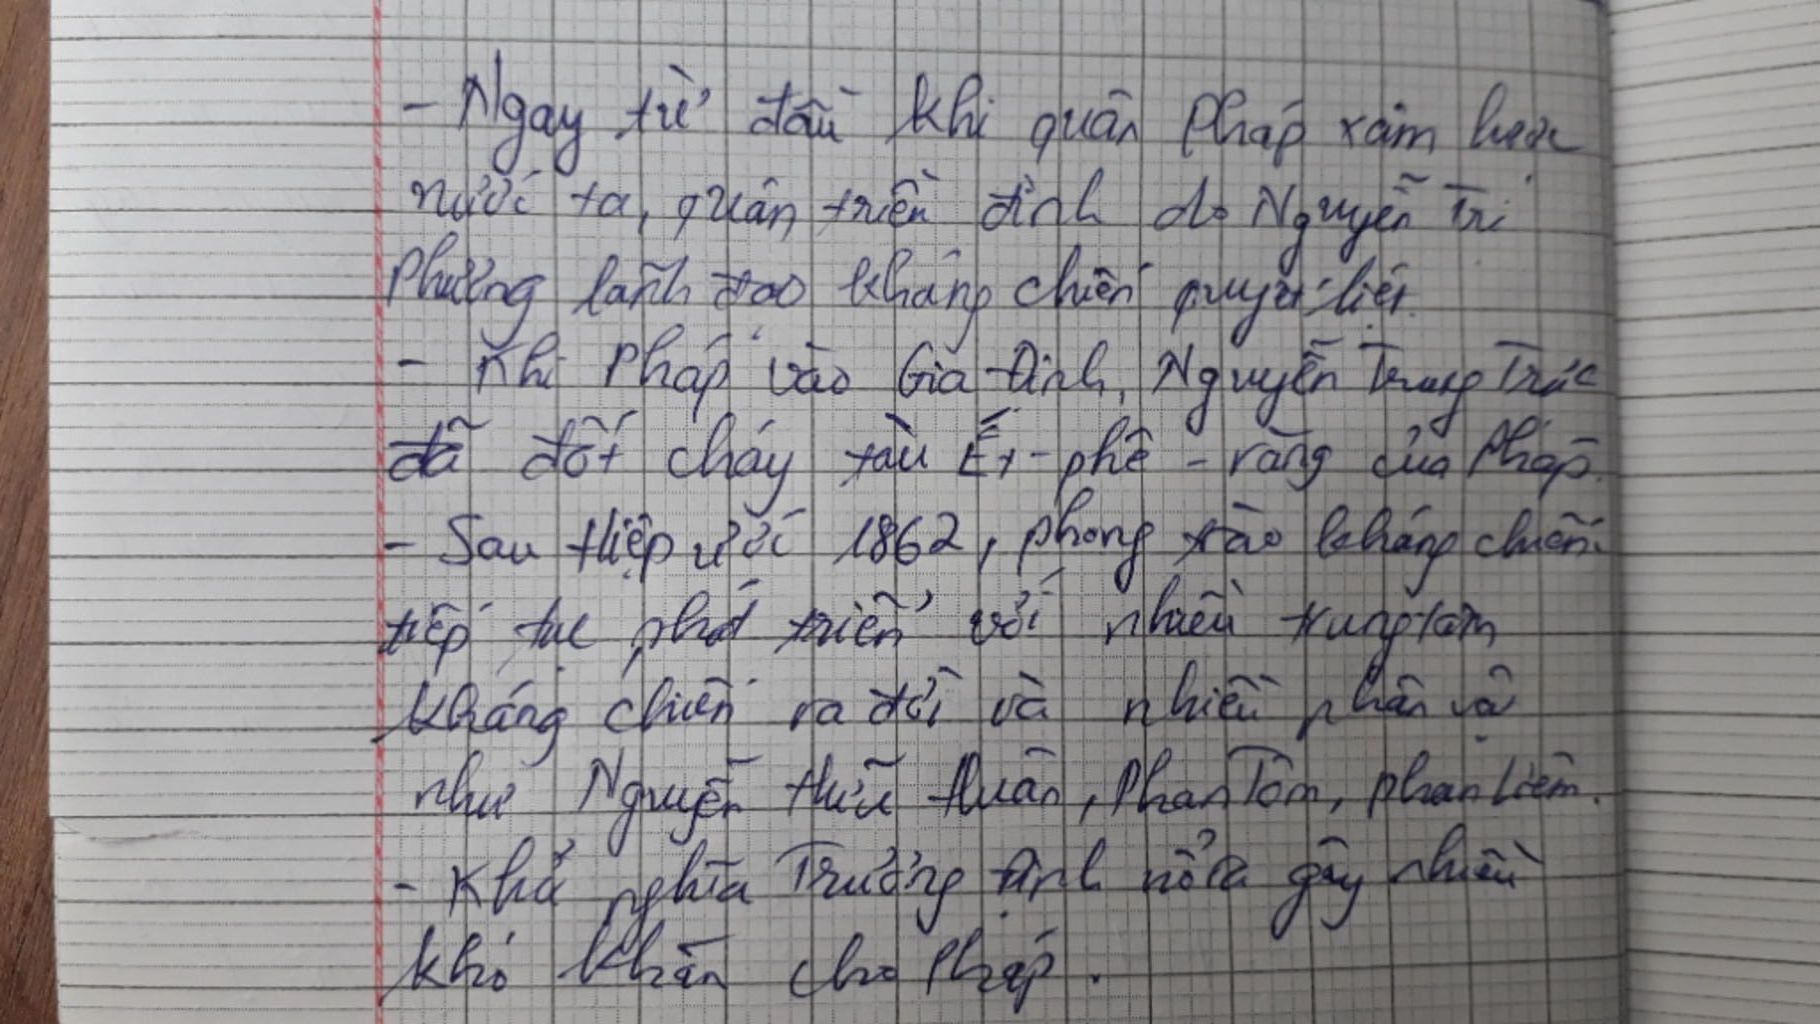 - Ngay từ đầu khi quân Pháp xâm lược
nước ta, quân triều đình do Nguyễn Tri
Phương lãnh đạo kháng chiến quyết liệt.
- Khi Pháp vào Gia Định, Nguyễn Trung Trực
đã đốt cháy tàu Ét-phê-răng của Pháp.
- Sau Hiệp ước 1862, phong trào kháng chiến
tiếp tục phát triển với nhiều trung tâm
kháng chiến ra đời và nhiều nhân vật
như Nguyễn Hữu Huân, Phan Tôn, Phan Liêm.
- Khởi nghĩa Trương Định nổ ra gây nhiều
khó khăn cho Pháp.